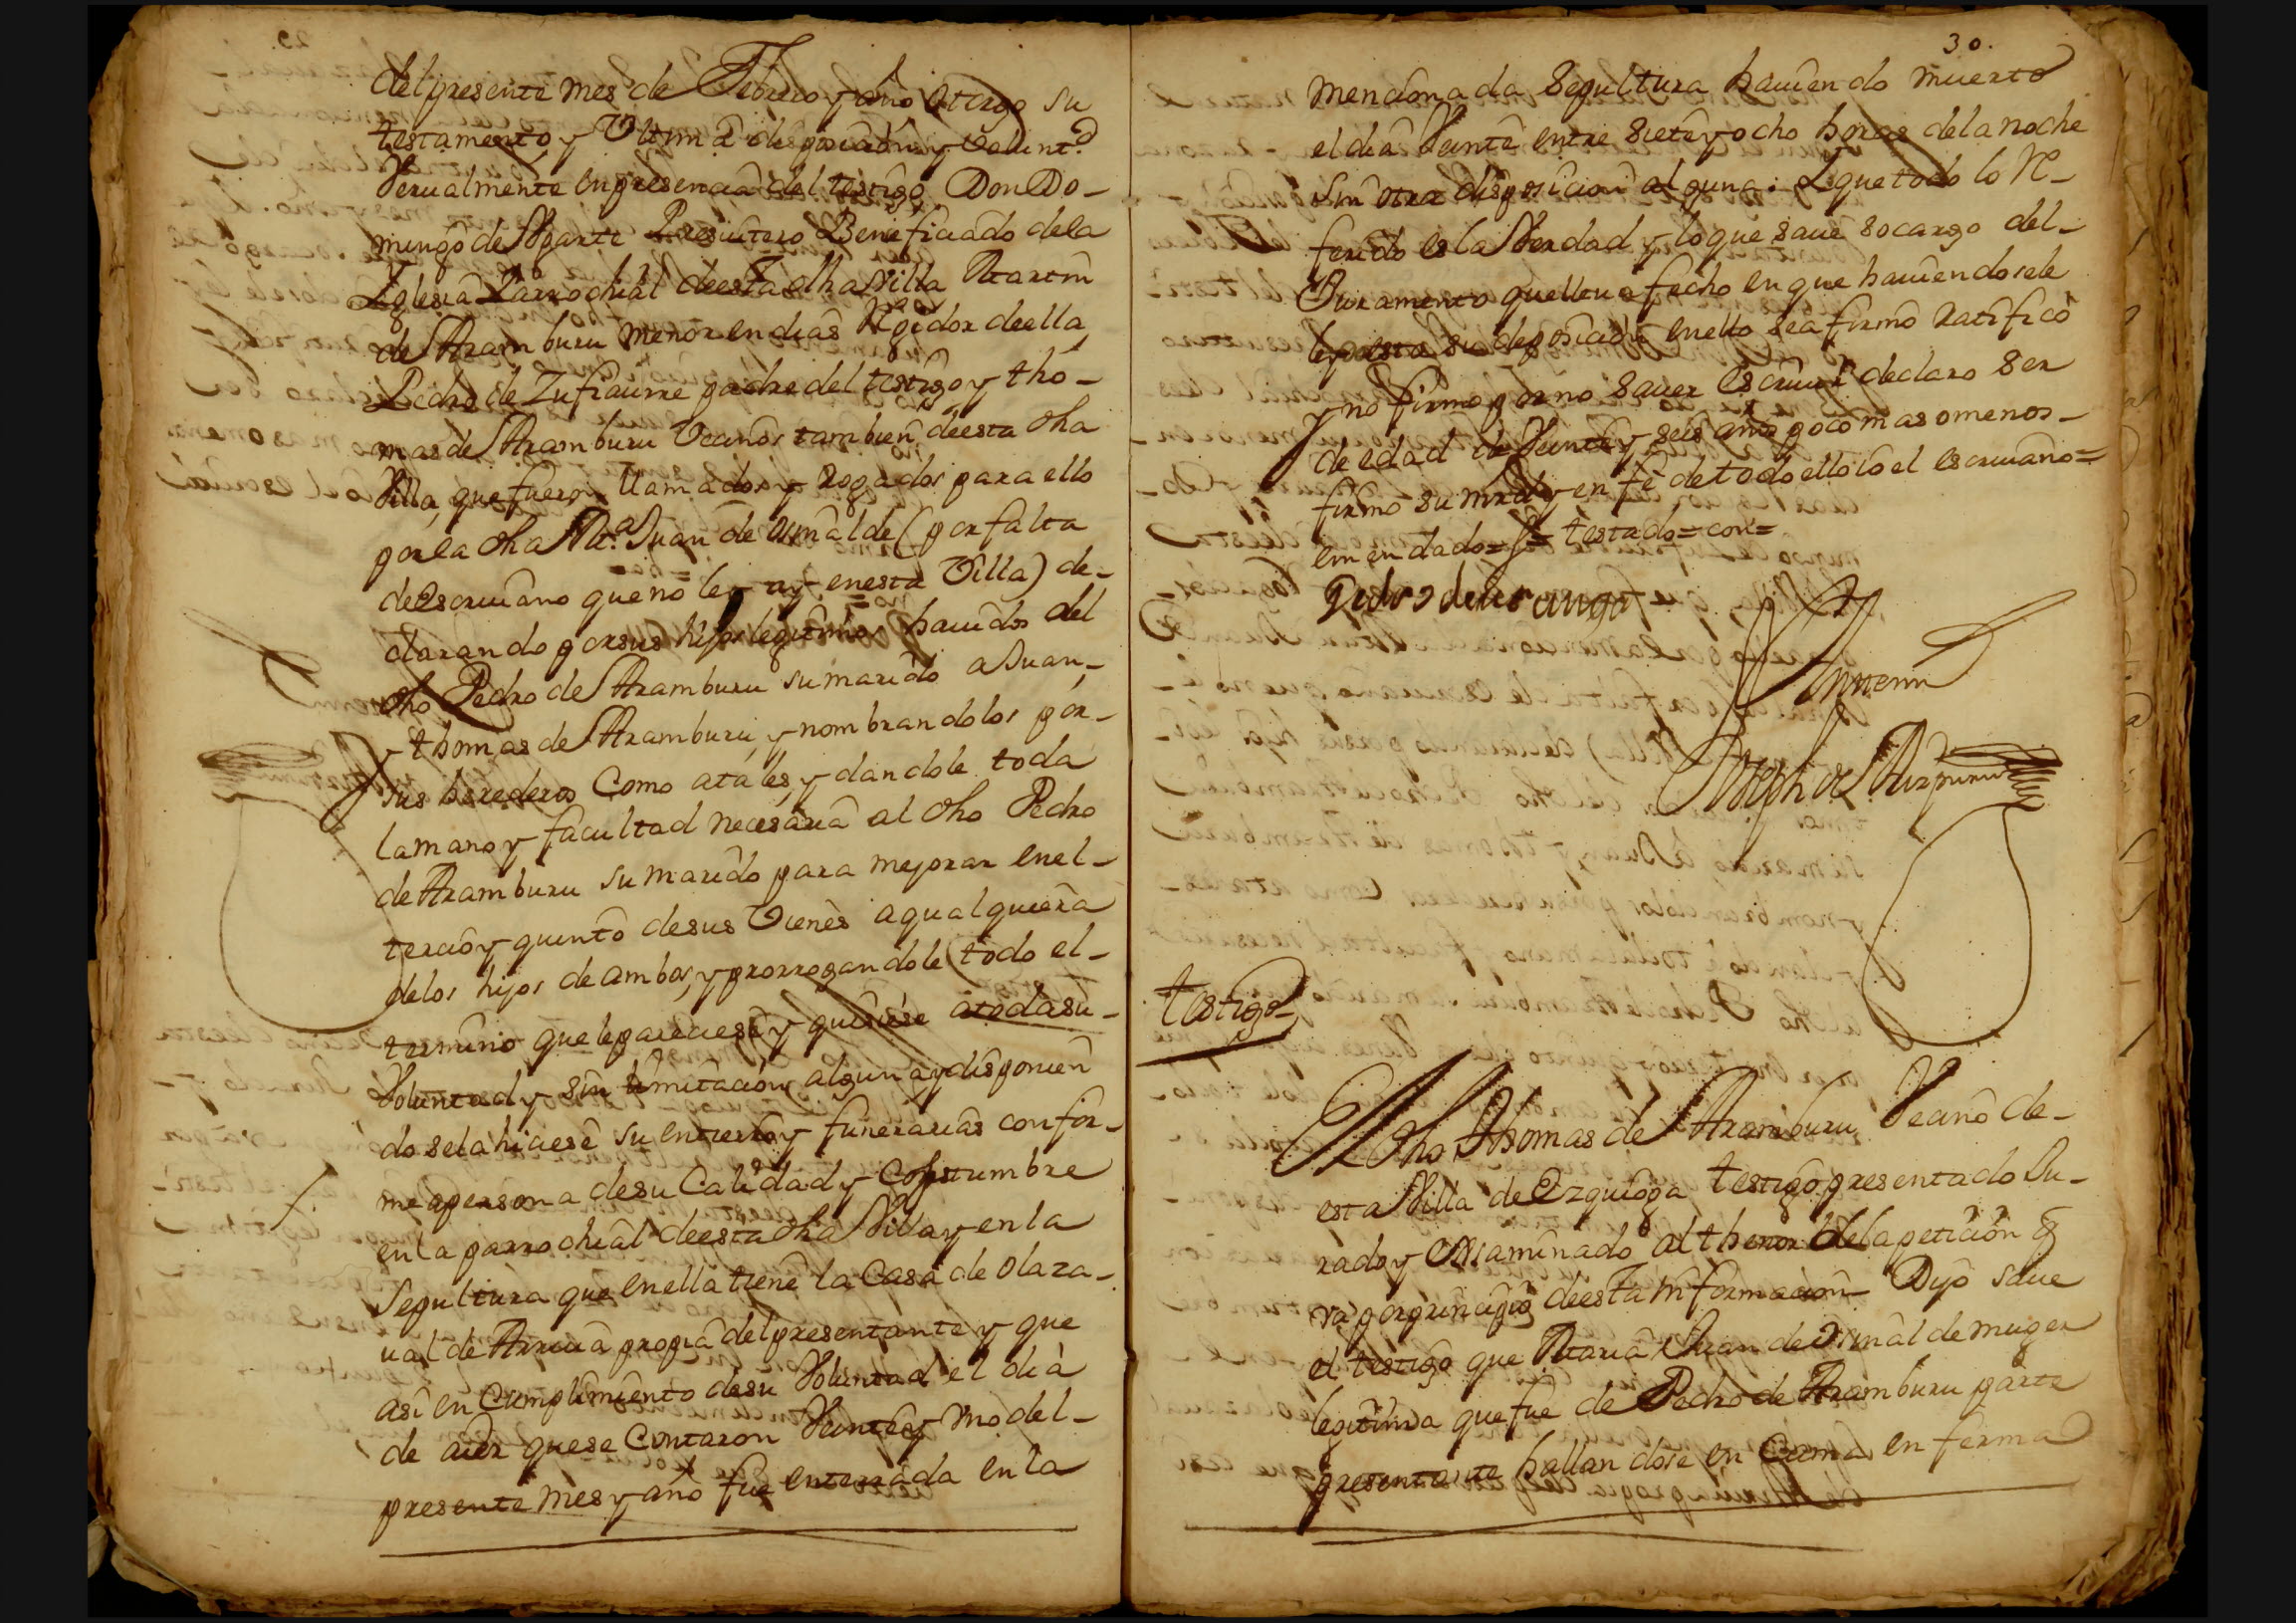 del presente mes de Febrero y año otorgo su
testamento y Ultima disposicion y Volunt.d
Verualmente en presencia del testigo Don Do-
mingo de Ugarte Presuitero Beneficiado dela
Iglesia Parrochial deesta dha Villa Martin
de Aramburu menor en dias Regidor deella
Pedro de Zufiaurre padre del testigo y tho-
mas de Aramburu Vecinos tambien deesta dha
Villa, que fueron llamados y rogados para ello
por la dha M.a Juan de (por falta
de escriuano que no le ay enesta Villa) de-
clarando por sus hijos legitimos hauidos del
dho Pedro de Aramburu su marido a Juan,-
y thomas de Aramburu, y nombrandolos por-
sus herederos Como atales, y dandole toda
lamano y facultad necesaria al dho Pedro
de Aramburu su marido para mejorar enel-
tercio y quinto desus Vienes aqualquiera
delos hijos de ambos, y prorrogandole todo el-
termino que le pareciese y quisiese atodasu-
Voluntad y sin limitacion alguna y disponien
do sela hiciese su entierro y funerarias confor-
me apersona desu Calidad y Costumbre
en la parrochial deesta dha Villa y en la
Sepultura que enella tiene la Casa de olaza-
ual de Arriua propia del presentante y que
asi en Cumplimiento desu Voluntad el dia
de aier que se Contaron Veinte y Vno del-
presente mes y año fue enterrada en la
30.
mencionada Sepultura hauiendo muerto
el dia Veinte entre siete y ocho horas dela noche
sin otra disposicion alguna: Y que todo lo Re-
ferido es la Verdad y lo que saue socargo del-
Juramento que lleua fecho en que hauiendosele
leydo esta su deposicion en ello sea firmo ratificò
y no firmo por no sauer escriuir declaro ser
de edad de Veinte y seis años poco mas omenos-
firmo su mrd y en fè de todo ello io el escriuano=
enmendado= testado= con=
Pedro de
Antemi
Joseph de
testigo
El dho Thomas de Aramburu Vecino de-
esta Villa de Ezquioga testigo presentado Ju-
rado y Examinado al thenor dela peticion q
va por principio deesta informacion Dijo saue
el testigo que Maria Juan de muger
legitima que fue de Pedro de Aramburu parte
presentante hallandose en Cama enferma